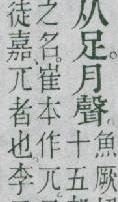 从足。月聲。魚厥
十五
之名。崔本作兀。
徒嘉、兀者也。李